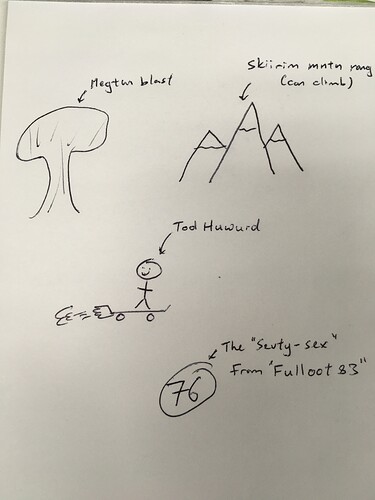 Megtun blast
Skiirim mntn rang
(can climb)
Tod Huwurd
76
The "Sevty-sex"
From "Fulloot 83"